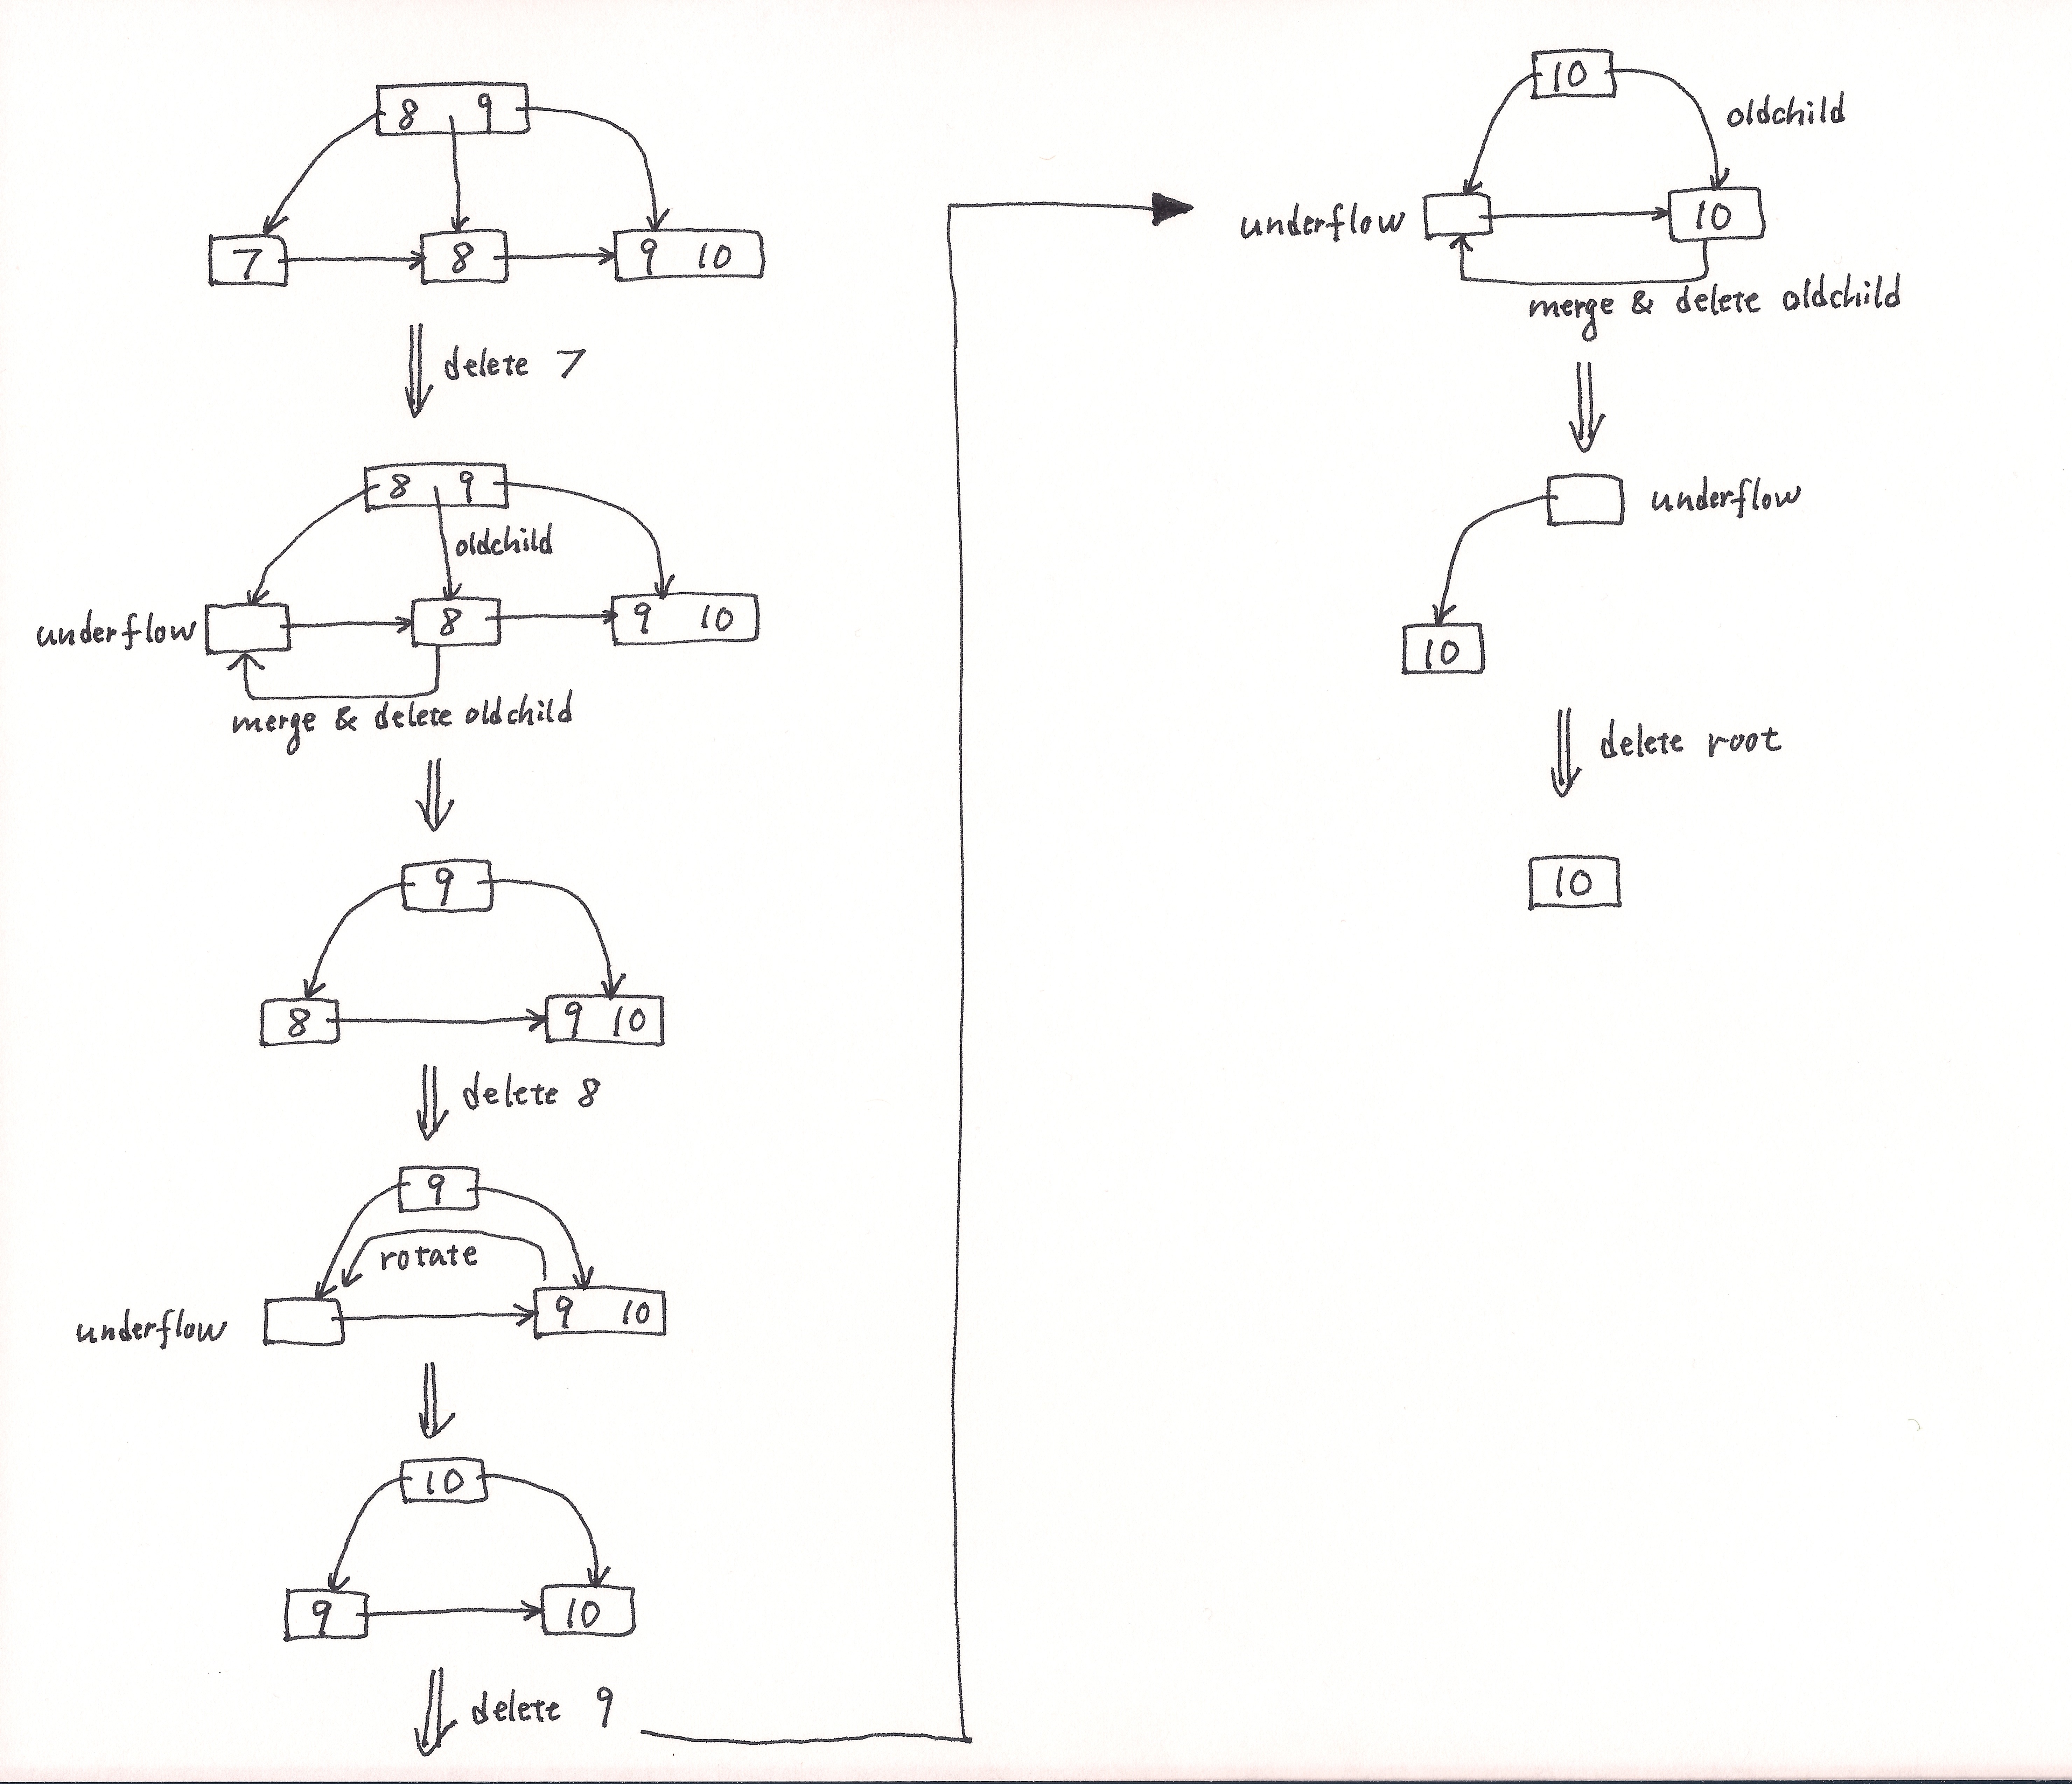 8 9
7 8 9 10
delete 7
8 9
oldchild
underflow 8 9 10
merge & delete oldchild
9
8 9 10
delete 8
9
rotate
underflow 9 10
10
9 10
delete 9
10
oldchild
underflow 10
merge & delete oldchild
underflow
10
delete root
10